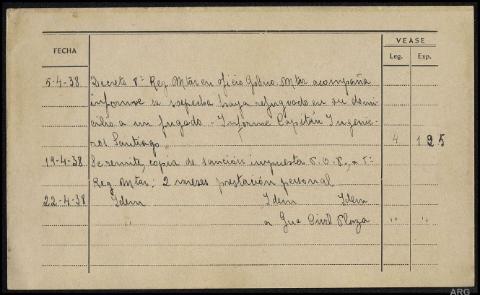 VEASE
FECHA
Leg. Exp.
5-4-38 Decreto 8ª Reg. Mtar en oficio Gobno. Mtar acompaña
informe se sospecha haya refugiado en su domi-
cilio a un fugado.- Informe Capitán Ingenie-
ros Santiago 4 195
19-4-38 Se remite, copia de sanción impuesta S.O.P., a 8ª
Reg. Mtar; 2 meses prestación personal
22-4-38 Idem Idem Idem
" a Gua Civil Plaza " "
ARG